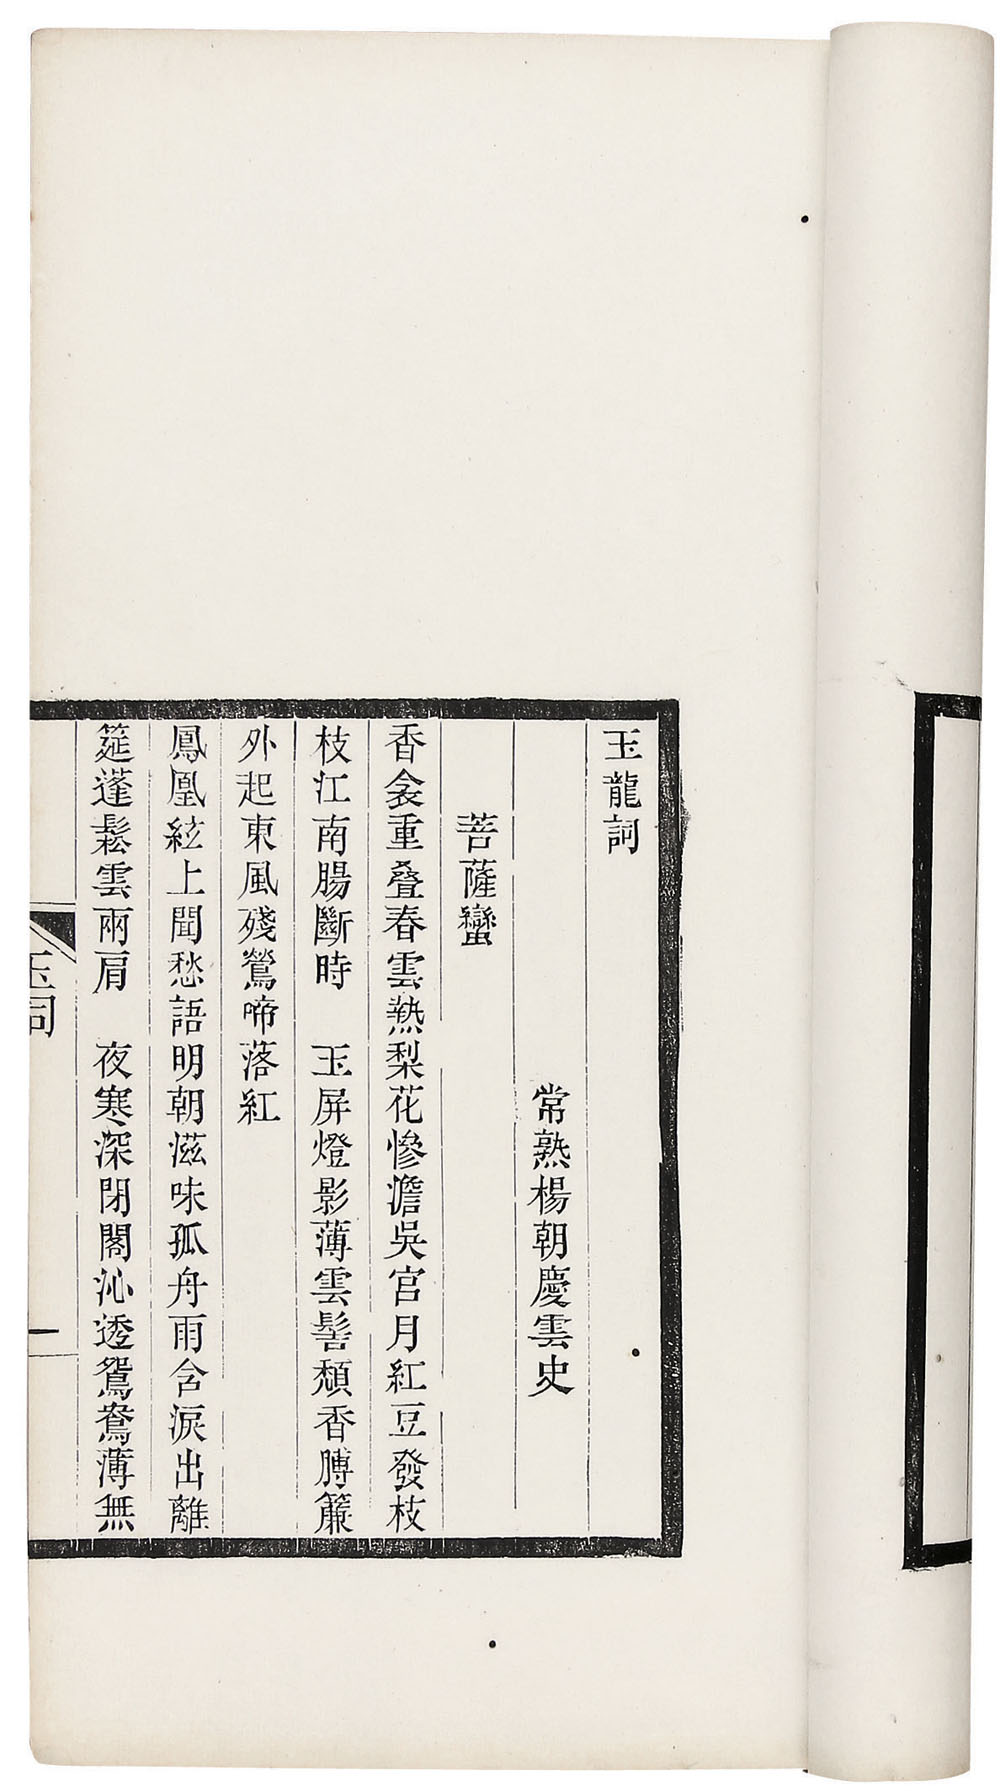 玉龍詞
常熟楊朝慶雲史
菩薩蠻
香衾重叠春雲熱梨花慘澹吳宮月紅豆發枝
枝江南腸斷時　玉屏燈影薄雲髻頹香膊簾
外起東風殘鶯啼落紅
鳳凰絃上聞愁語明朝滋味孤舟雨含淚出離
筵蓬鬆雲兩肩　夜寒深閉閣沁透鴛鴦薄無
玉詞
一